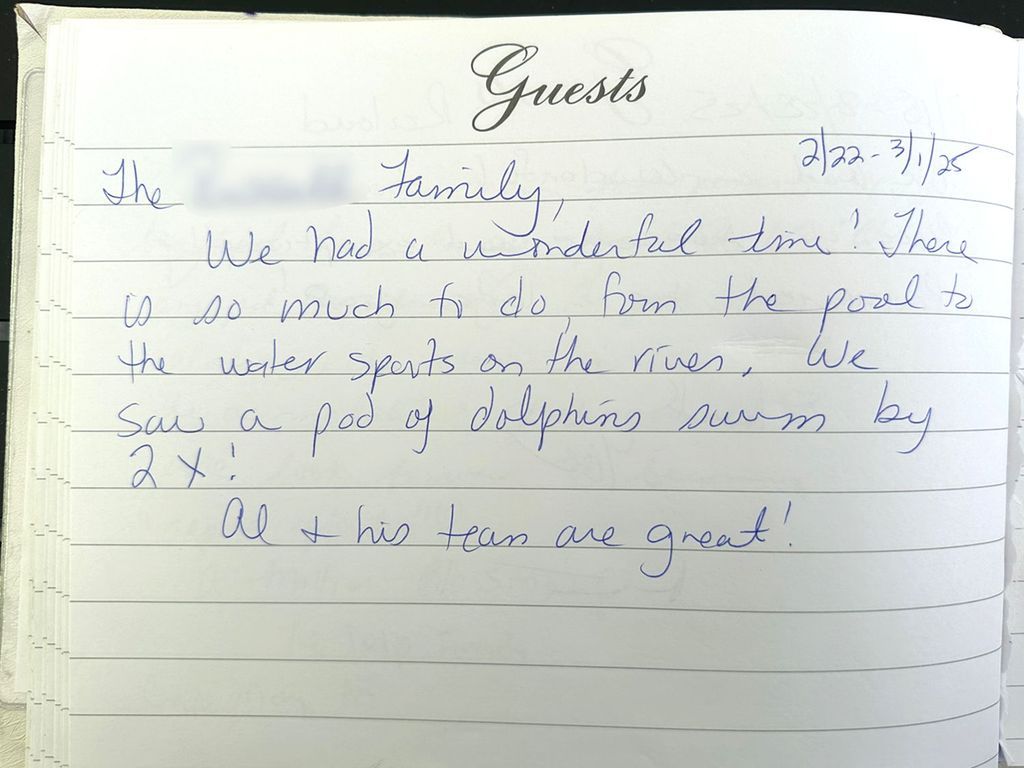 Guests
2/22 - 3/1/25
The Family,
We had a wonderful time! There
is so much to do, form the pool to
the water sports on the river. We
saw a pod of dolphins swim by
2 X!
Al + his team are great!